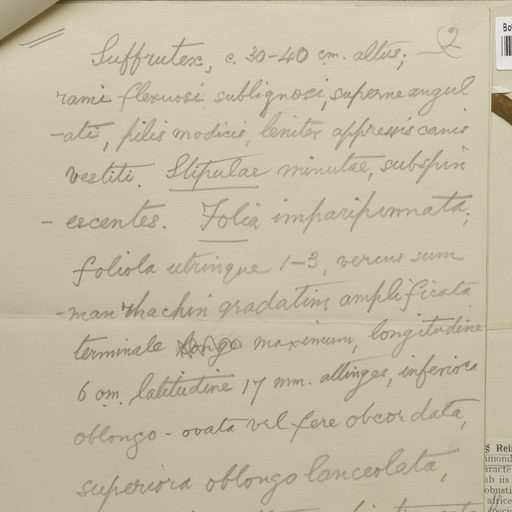 2
Suffrutex, c. 30-40 cm. altus;
rami flexuosi, sublignosi, superne angul
-ati, pilis modicis, leniter appressis canis
vestiti. Stipulae minutae, subspin
-escentes. Folia imparipinnata,
foliola utrinque 1-3, versus sum
-mam rhachin gradatim amplificata
terminale longo maximum, longitudine
6 cm. latitudine 17 mm. attinges, inferiora
oblongo-ovata vel fere obcordata,
superiora oblongo lanceolata,
Bot
§ Rei